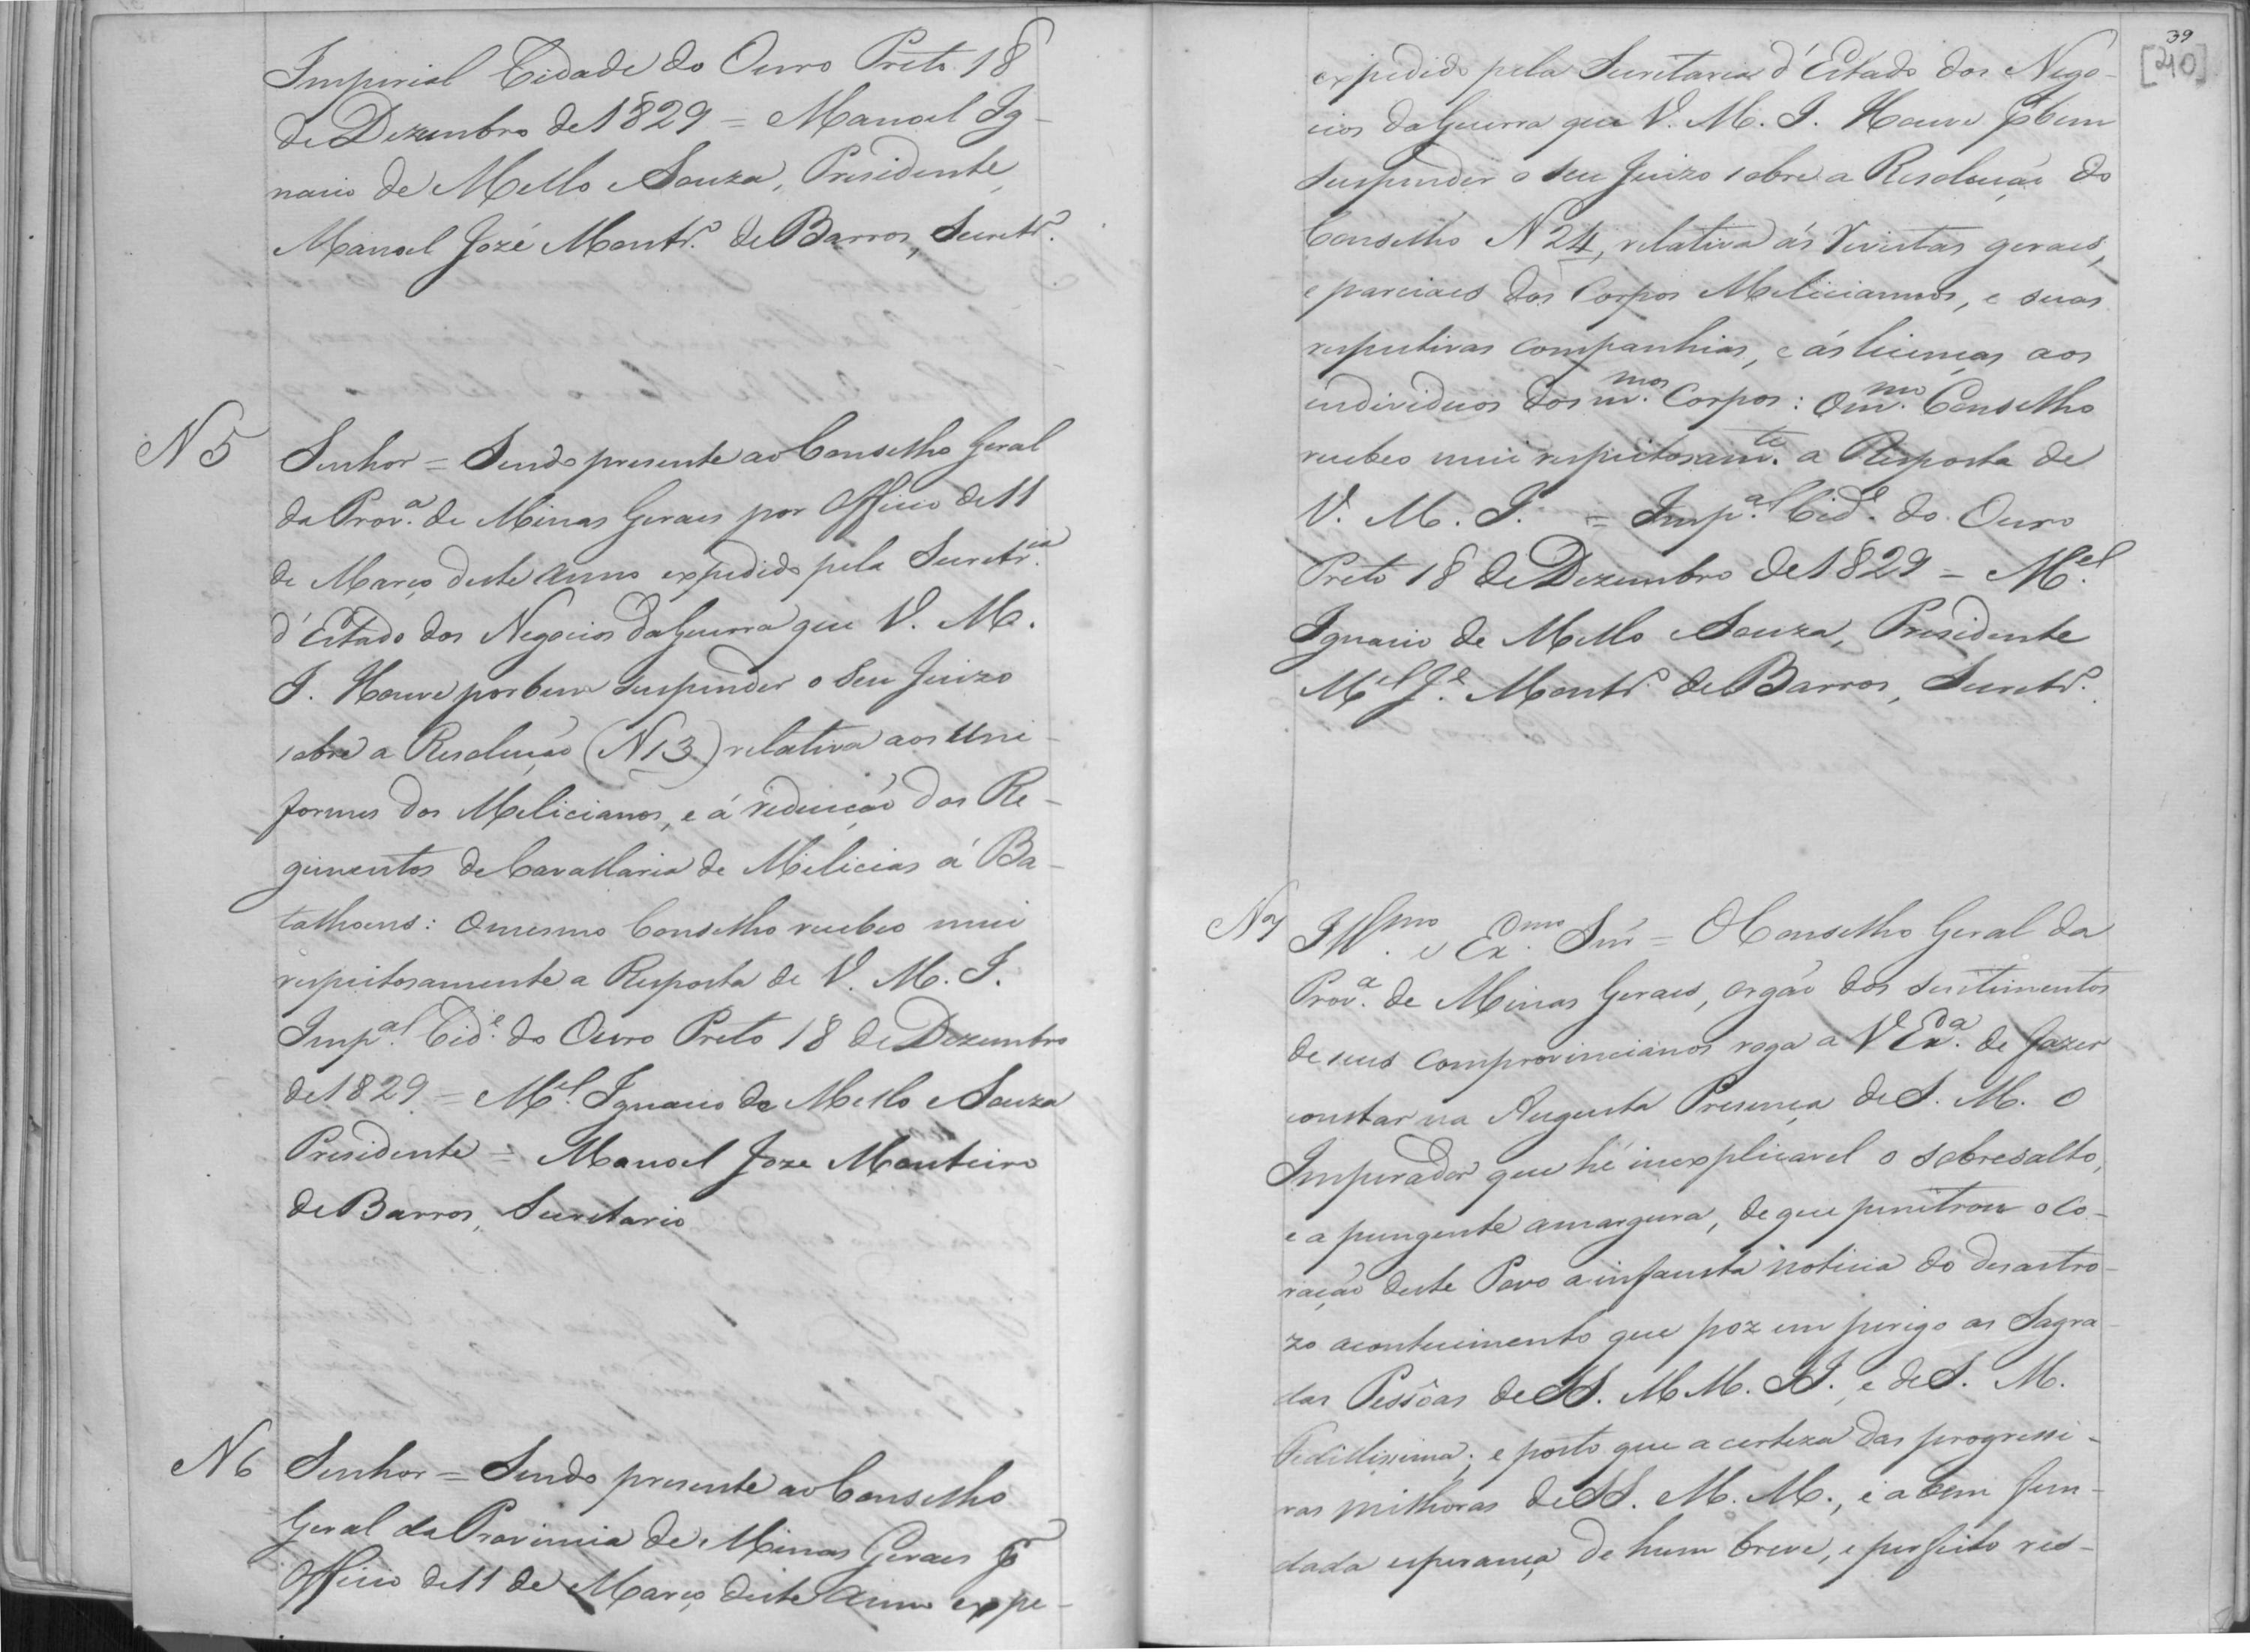 Imperial Cidade do Ouro Preto 18
de Dezembro de 1829 = Manoel Ig-
nacio de Mello e Souza, Presidente,
Manoel Jozé Montr.º de Barros, Secretr.º
N 5
Senhor = Sendo presente ao Conselho Geral
da Prov.ª de Minas Geraes por Officio de 11
de Março deste anno expedido pela Secretr.ia
d'Estado dos Negocios da Guerra que V. M.
I. Houve por bem suspender o Seu Juizo
sobre a Resolução (N 13) relativa aos Uni-
formes dos Melicianos, e á reducção dos Re-
gimentos de Cavallaria de Milicias á Ba-
talhoens: o mesmo Conselho recebeo mui
respeitosamente a Resposta de V. M. I.
Imp.al Cid.e do Ouro Preto 18 de Dezembro
de 1829 = M.el Ignacio de Mello e Souza
Presidente = Manoel Joze Monteiro
de Barros, Secretario
N 6
Senhor = Sendo presente ao Conselho
Geral da Provincia de Minas Geraes p.r
Officio de 11 de Março deste anno expe-
39
[40]
expedido pela Secretaria d'Estado dos Nego-
cios da Guerra que V. M. I. Houve p.r bem
suspender o seu Juizo sobre a Resolução do
Conselho N 24, relativa ás Revistas geraes,
e parciaes dos Corpos Melicianos, e suas
respectivas companhias, e ás licenças aos
individuos dos m.mos Corpos: o m.mo Conselho
recebeo mui respeitosam.te a Resposta de
V. M. I. = Imp.al Cid.e do Ouro
Preto 18 de Dezembro de 1829 = M.el
Ignacio de Mello e Souza, Presidente
M.el J.e Montr.º de Barros, Secretr.º
N 7
Ill.mo e Ex.mo Snr = O Conselho Geral da
Prov.ª de Minas Geraes, orgão dos sentimentos
de seus comprovincianos roga a V Ex.ª de fazer
constar na Augusta Presença de S. M. O
Imperador que hé inexplicavel o sobresalto,
e a pungente amargura, de que penetrou o co-
ração deste Povo a infausta noticia do desastro-
zo acontecimento que poz em perigo as Sagra-
das Pessôas de SS. MM. II., e de S. M.
Fidelissima; e posto que a certeza das progressi-
vas milhoras de SS. M. M., e a bem fun-
dada esperança de hum breve, e perfeito res-